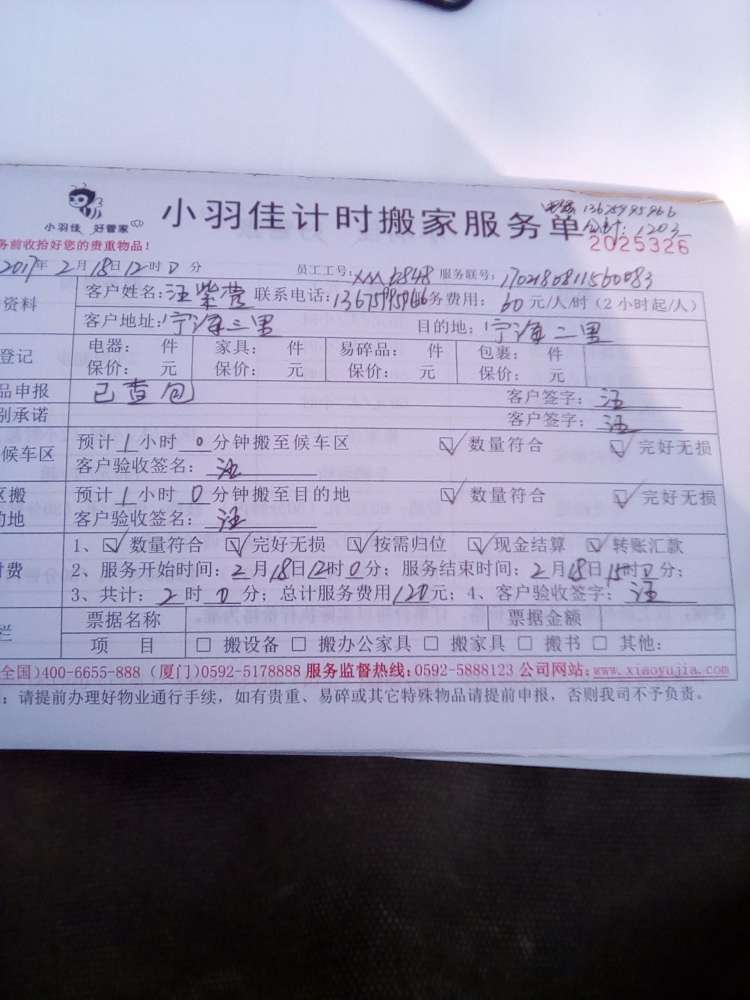 13675995966
小羽佳 好管家
小羽佳计时搬家服务单
合计：1203
2025326
务前收拾好您的贵重物品！
2017年2月18日12时0分 员工工号：XM6848 服务联号：1702180811560083
资料 客户姓名：汪紫莹 联系电话：13675995966务费用：60元/人/时（2小时起/人）
客户地址：宁海三里 目的地：宁海二里
登记 电器： 件 家具： 件 易碎品： 件 包裹： 件
保价： 元 保价： 元 保价： 元 保价： 元
品申报 已查包 客户签字：汪
别承诺 客户签字：汪
候车区 预计1小时0分钟搬至候车区 ☑数量符合 ☑完好无损
客户验收签名：汪
区搬 预计1小时0分钟搬至目的地 ☑数量符合 ☑完好无损
的地 客户验收签名：汪
1、☑数量符合 ☑完好无损 ☑按需归位 ☑现金结算 ☑转账汇款
付费 2、服务开始时间：2月18日12时0分；服务结束时间：2月18日15时0分；
3、共计：2时0分；总计服务费用120元；4、客户验收签字：汪
栏 票据名称 票据金额
项 目 □搬设备 □搬办公家具 □搬家具 □搬书 □其他：
全国)400-6655-888 (厦门)0592-5178888 服务监督热线:0592-5888123 公司网站:www.xiaoyujia.com
：请提前办理好物业通行手续，如有贵重、易碎或其它特殊物品请提前申报，否则我司不予负责。